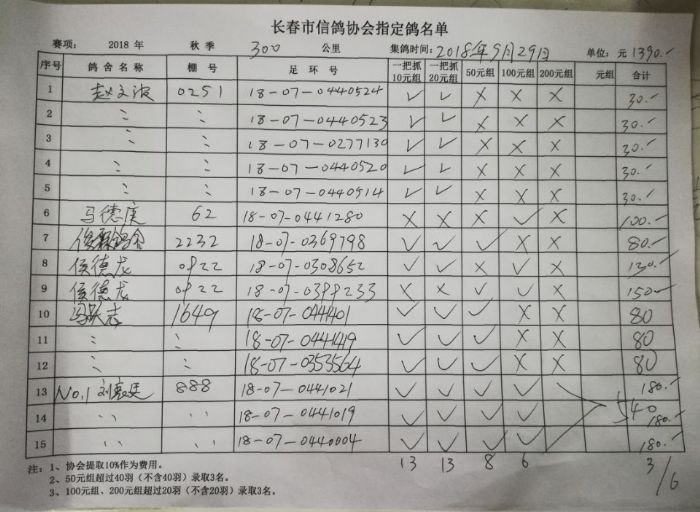 长春市信鸽协会指定鸽名单
赛项: 2018 年 秋 季 300 公里 集鸽时间: 2018年9月29日 单位: 元 1390.-
序号 鸽舍名称 棚号 足环号 一把抓10元组 一把抓20元组 50元组 100元组 200元组 元组 合计
1 赵文波 0251 18-07-0440524 ✓ ✓ X X X 30.-
2 〃 〃 18-07-0440523 ✓ ✓ X X X 30.-
3 〃 〃 18-07-0277130 ✓ ✓ X X X 30.-
4 〃 〃 18-07-0440520 ✓ ✓ X X X 30.-
5 〃 〃 18-07-0440514 ✓ ✓ X X X 30.-
6 马德 62 18-07-0441280 X X X ✓ X 100.-
7 鸽舍 2232 18-07-0369798 ✓ ✓ ✓ X X 80.-
8 侯德龙 0822 18-07-0308652 ✓ ✓ X ✓ X 130.-
9 侯德龙 0822 18-07-0399233 X X ✓ ✓ X 150.-
10 冯 志 1649 18-07-0441401 ✓ ✓ ✓ X X 80
11 〃 〃 18-07-0441419 ✓ ✓ ✓ X X 80
12 〃 〃 18-07-0353564 ✓ ✓ ✓ X X 80
13 No.1 刘 廷 888 18-07-0441021 ✓ ✓ ✓ ✓ 180.-
14 〃 〃 18-07-0441019 ✓ ✓ ✓ ✓ 540 180.-
15 〃 〃 18-07-0440004 ✓ ✓ ✓ ✓ 180.-
13 13 8 6 3/6
注: 1、协会提取10%作为费用。
2、50元组超过40羽 (不含40羽) 录取3名。
3、100元组、200元组超过20羽 (不含20羽) 录取3名。